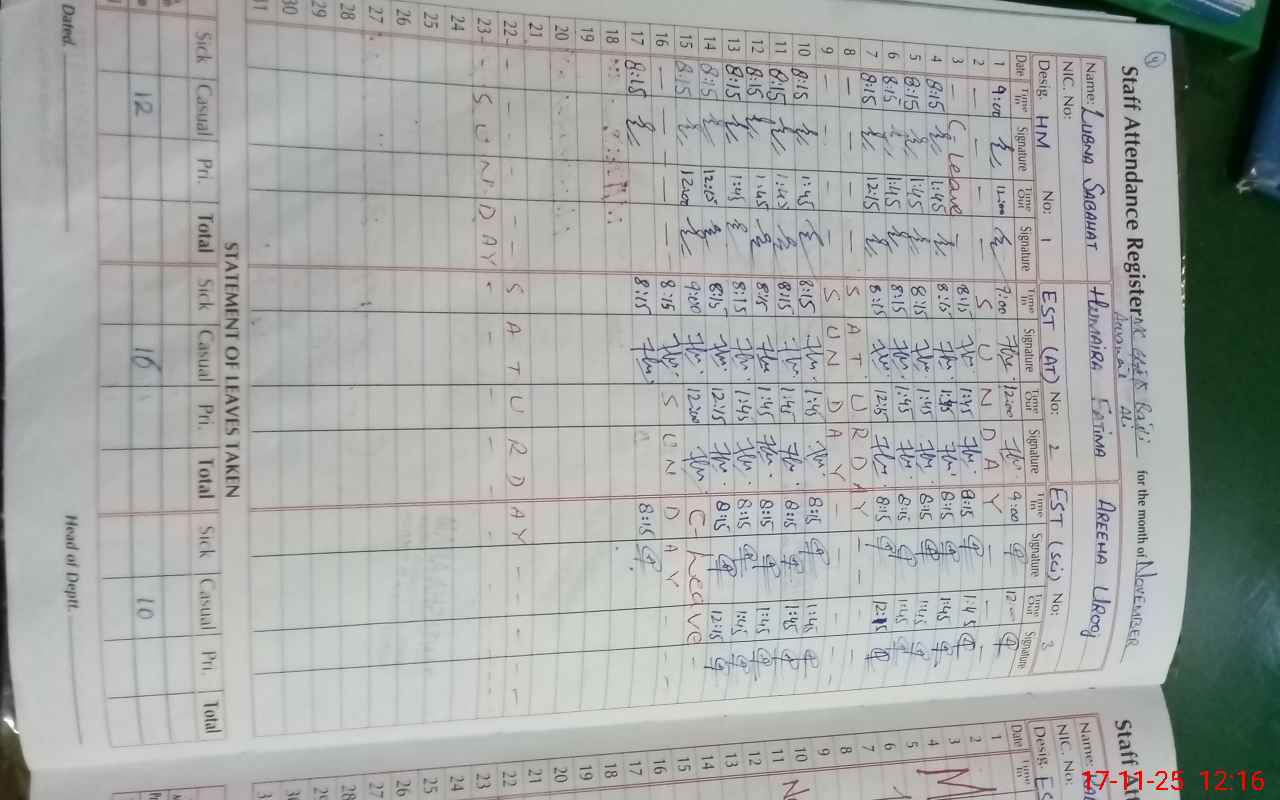 4
Staff Attendance Register for the month of NOVEMBER
Name: LUBNA SABAHAT HUMAIRA FATIMA AREEHA UROOJ
NIC. No:
Desig. HM No: 1 EST (AT) No: 2 EST (Sci) No: 3
Date Time In Signature Time Out Signature Time In Signature Time Out Signature Time In Signature Time Out Signature
1 9:00 12:00 9:00 12:00 9:00 12
2 - - - S U N D A Y - -
3 - C-Leave - 8:15 1:45 8:15 1:45
4 8:15 1:45 8:15 1:45 8:15 1:45
5 8:15 1:45 8:15 1:45 8:15 1:45
6 8:15 1:45 8:15 1:45 8:15 1:45
7 8:15 12:15 8:15 12:15 8:15 12:15
8 - - - - S A T U R D A Y - - -
9 - - - - S U N D A Y - - - -
10 8:15 1:45 8:15 1:45 8:15 1:45
11 8:15 1:45 8:15 1:45 8:15 1:45
12 8:15 1:45 8:15 1:45 8:15 1:45
13 8:15 1:45 8:15 1:45 8:15 1:45
14 8:15 12:15 8:15 12:15 8:15 12:15
15 8:15 12:00 9:00 12:00 C-Leave -
16 - - - - 8:15 S U N D A Y - -
17 8:15 8:15 8:15
18
19
20
21
22 - - - - S A T U R D A Y - - - -
23 - - S U N D A Y - - - - - - -
24
25
26
27
28
29
30
31
STATEMENT OF LEAVES TAKEN
Sick Casual Pri. Total Sick Casual Pri. Total Sick Casual Pri. Total
12 16 10
Dated. Head of Deptt.
Staff Att
Name:
NIC. No:
Desig. ES
Date Time In
1
2
3
4
5
6
7
8
9
10
11
12
13
14
15
16
17
18
19
20
21
22
23
24
25
26
27
28
17-11-25 12:16